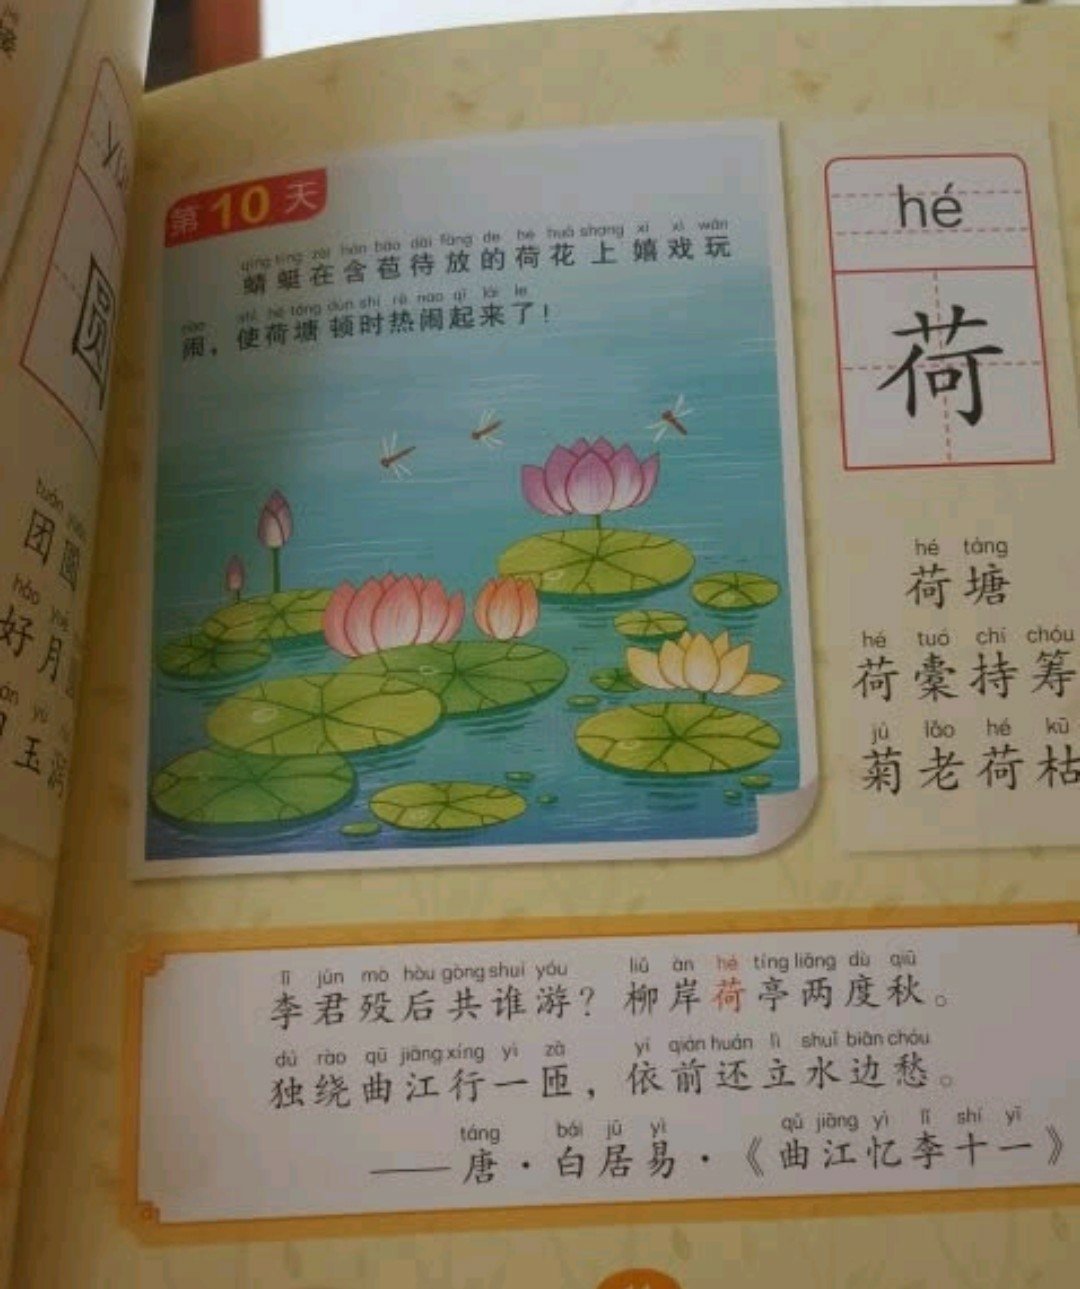 圆
tuán
团圆
hǎo yuè
好月
玉润
第10天
qīng tíng zài hán bāo dài fàng de hé huā shang xī xì wán
蜻蜓在含苞待放的荷花上嬉戏玩
nào shǐ hé táng dùn shí rè nao qǐ lái le
闹，使荷塘顿时热闹起来了！
hé
荷
hé táng
荷塘
hé tuó chí chóu
荷橐持筹
jú lǎo hé kū
菊老荷枯
lǐ jūn mò hòu gòng shuí yóu liǔ àn hé tíng liǎng dù qiū
李君殁后共谁游？柳岸荷亭两度秋。
dú rào qū jiāng xíng yì zā yī qián huán lì shuǐ biān chóu
独绕曲江行一匝，依前还立水边愁。
táng bái jū yì qū jiāng yì lǐ shí yī
——唐·白居易·《曲江忆李十一》